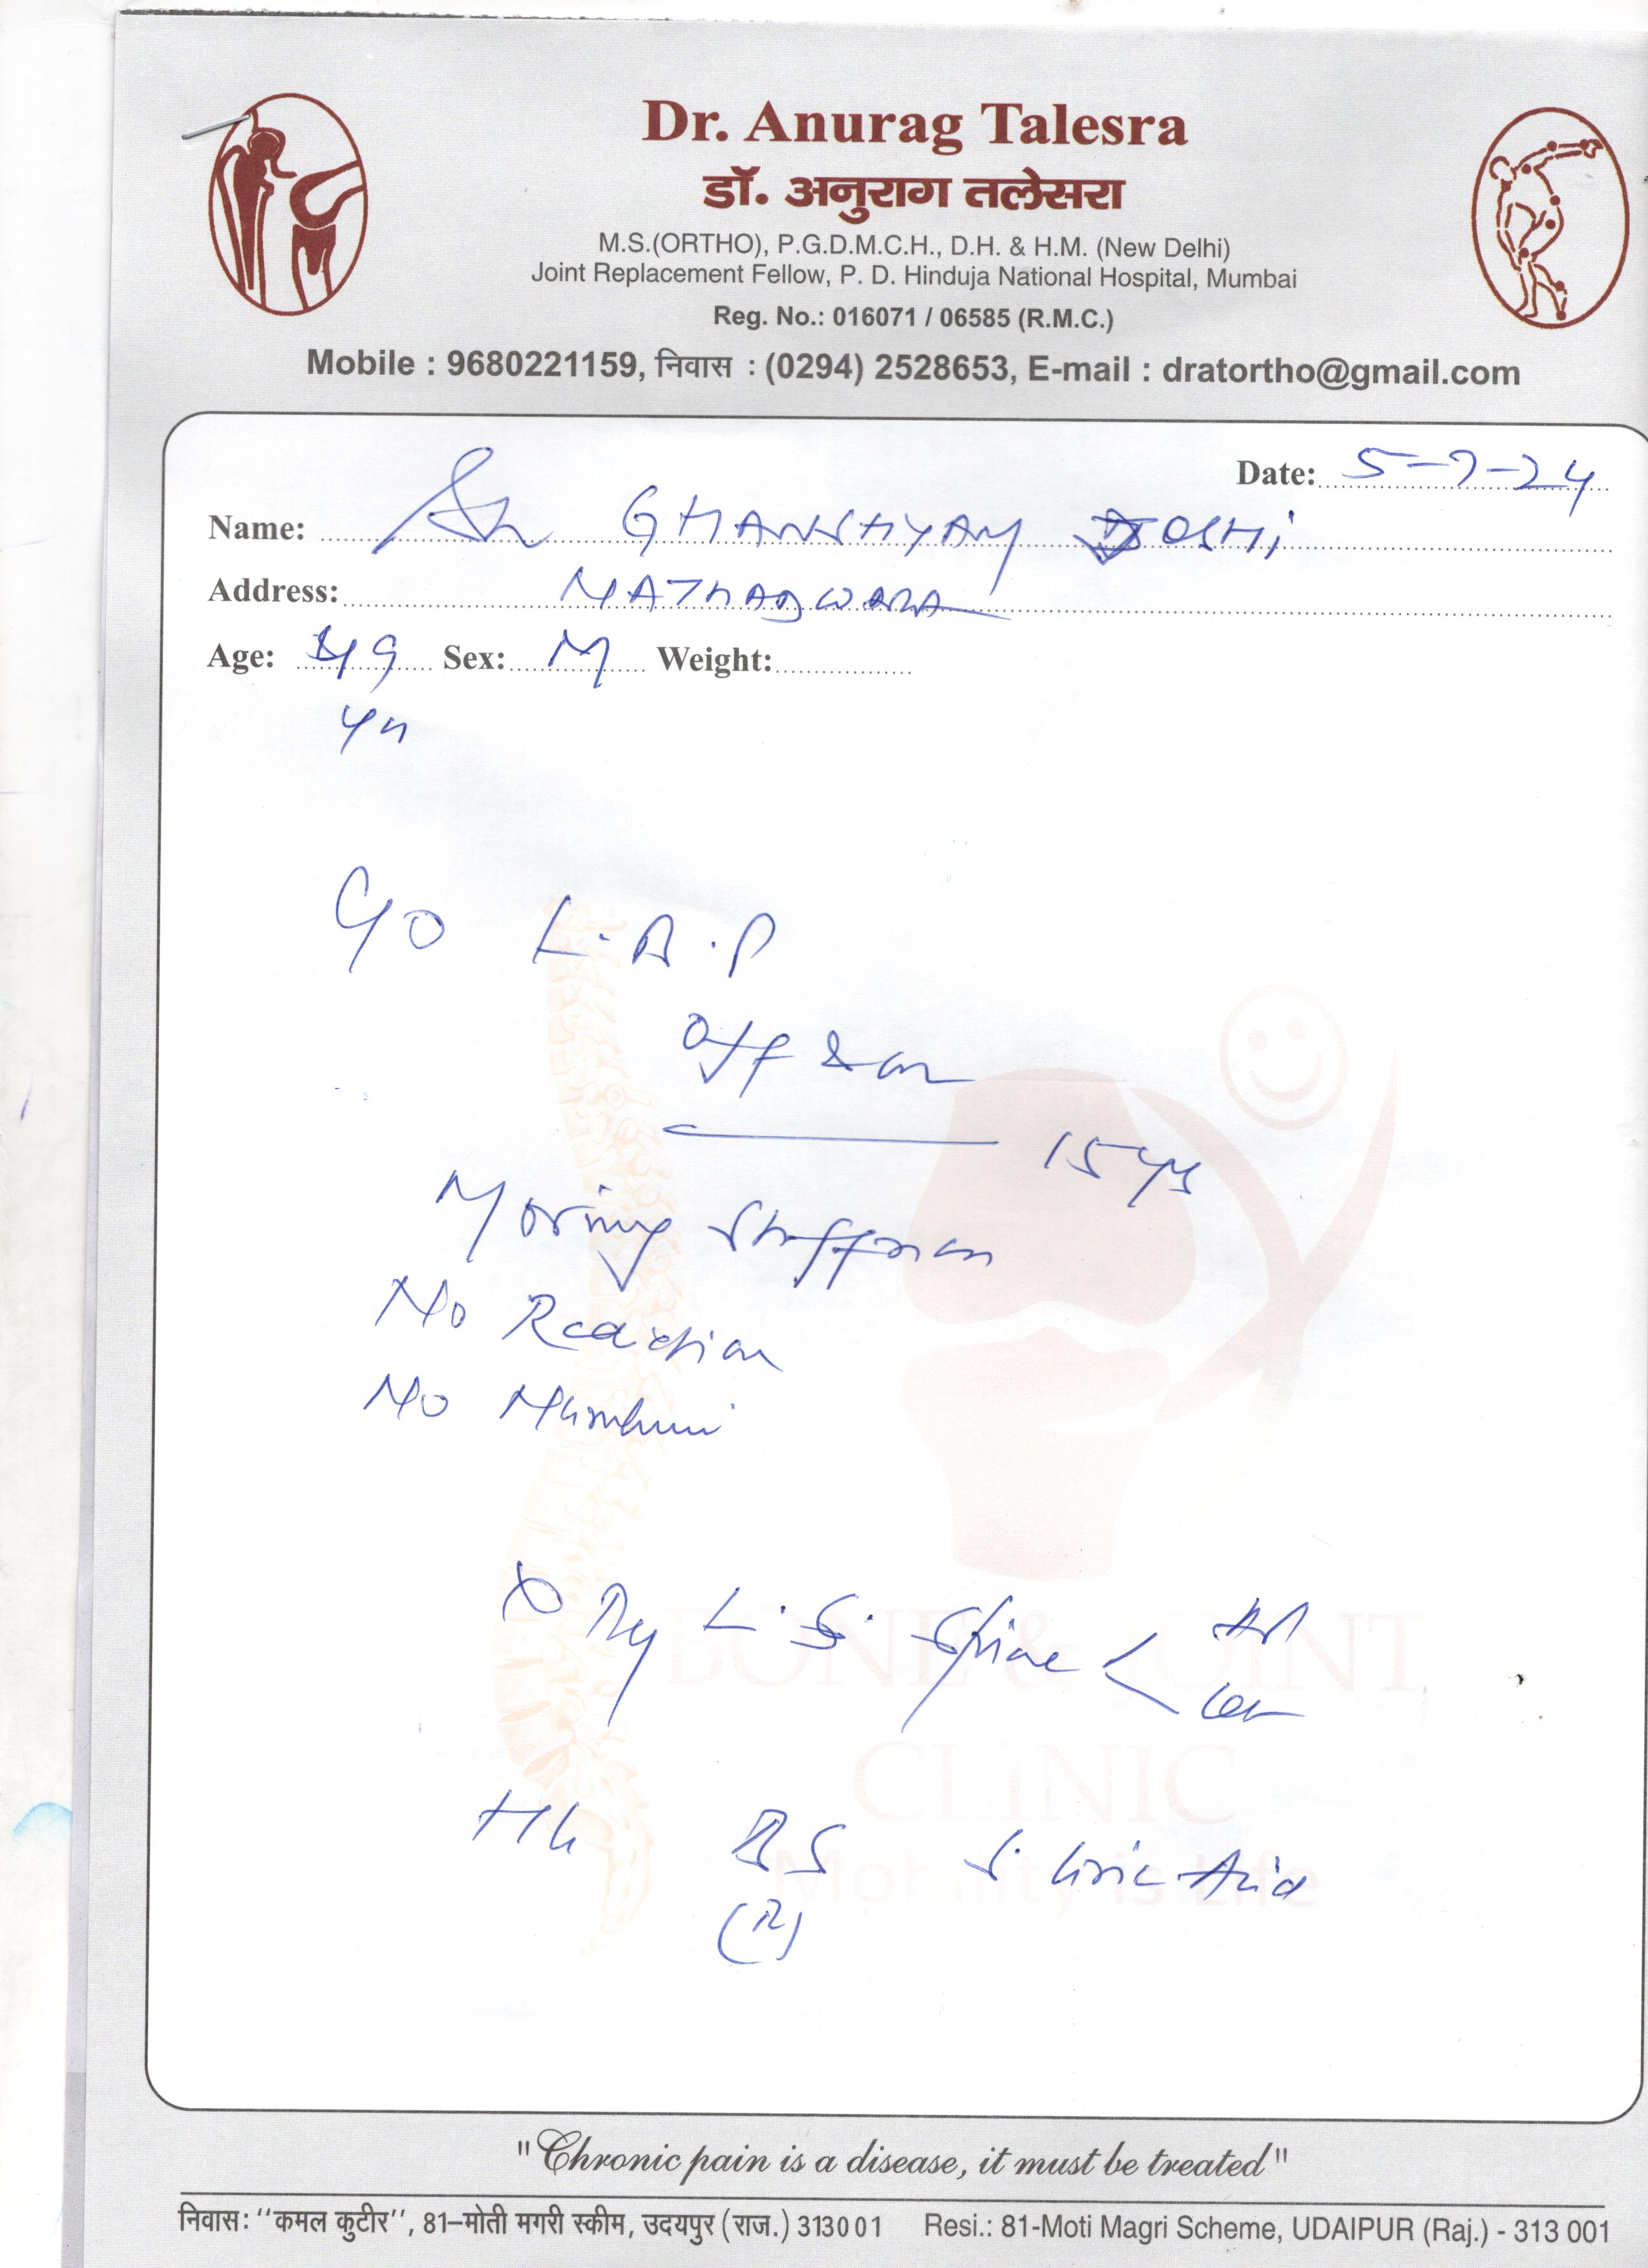 Dr. Anurag Talesra
डॉ. अनुराग तलेसरा
M.S.(ORTHO), P.G.D.M.C.H., D.H. & H.M. (New Delhi)
Joint Replacement Fellow, P. D. Hinduja National Hospital, Mumbai
Reg. No.: 016071 / 06585 (R.M.C.)
Mobile : 9680221159, निवास : (0294) 2528653, E-mail : dratortho@gmail.com
Date: 5-7-24
Name: GHANSHYAM JOSHI
Address: NATHADWARA
Age: 49 Sex: M Weight:
Yr
C/O L.B.P
Off & on
15 yrs
Morning Stiffness
No Radiation
No Numbness
X Ray L.S. Spine < AP
Lat
BONE & JOINT
CLINIC
Mobility is Life
Hb BS S. Uric Acid
(R)
"Chronic pain is a disease, it must be treated"
निवास: ''कमल कुटीर'', 81–मोती मगरी स्कीम, उदयपुर (राज.) 313001 Resi.: 81-Moti Magri Scheme, UDAIPUR (Raj.) - 313 001